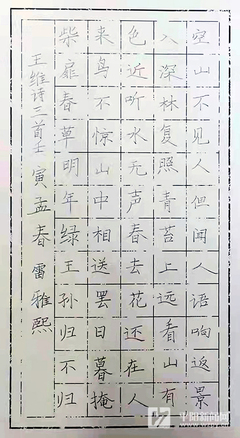 空山不见人但闻人语响返景
入深林复照青苔上远看山有
色近听水无声春去花还在人
来鸟不惊山中相送罢日暮掩
柴扉春草明年绿王孙归不归
王维诗三首壬寅孟春雷雅熙